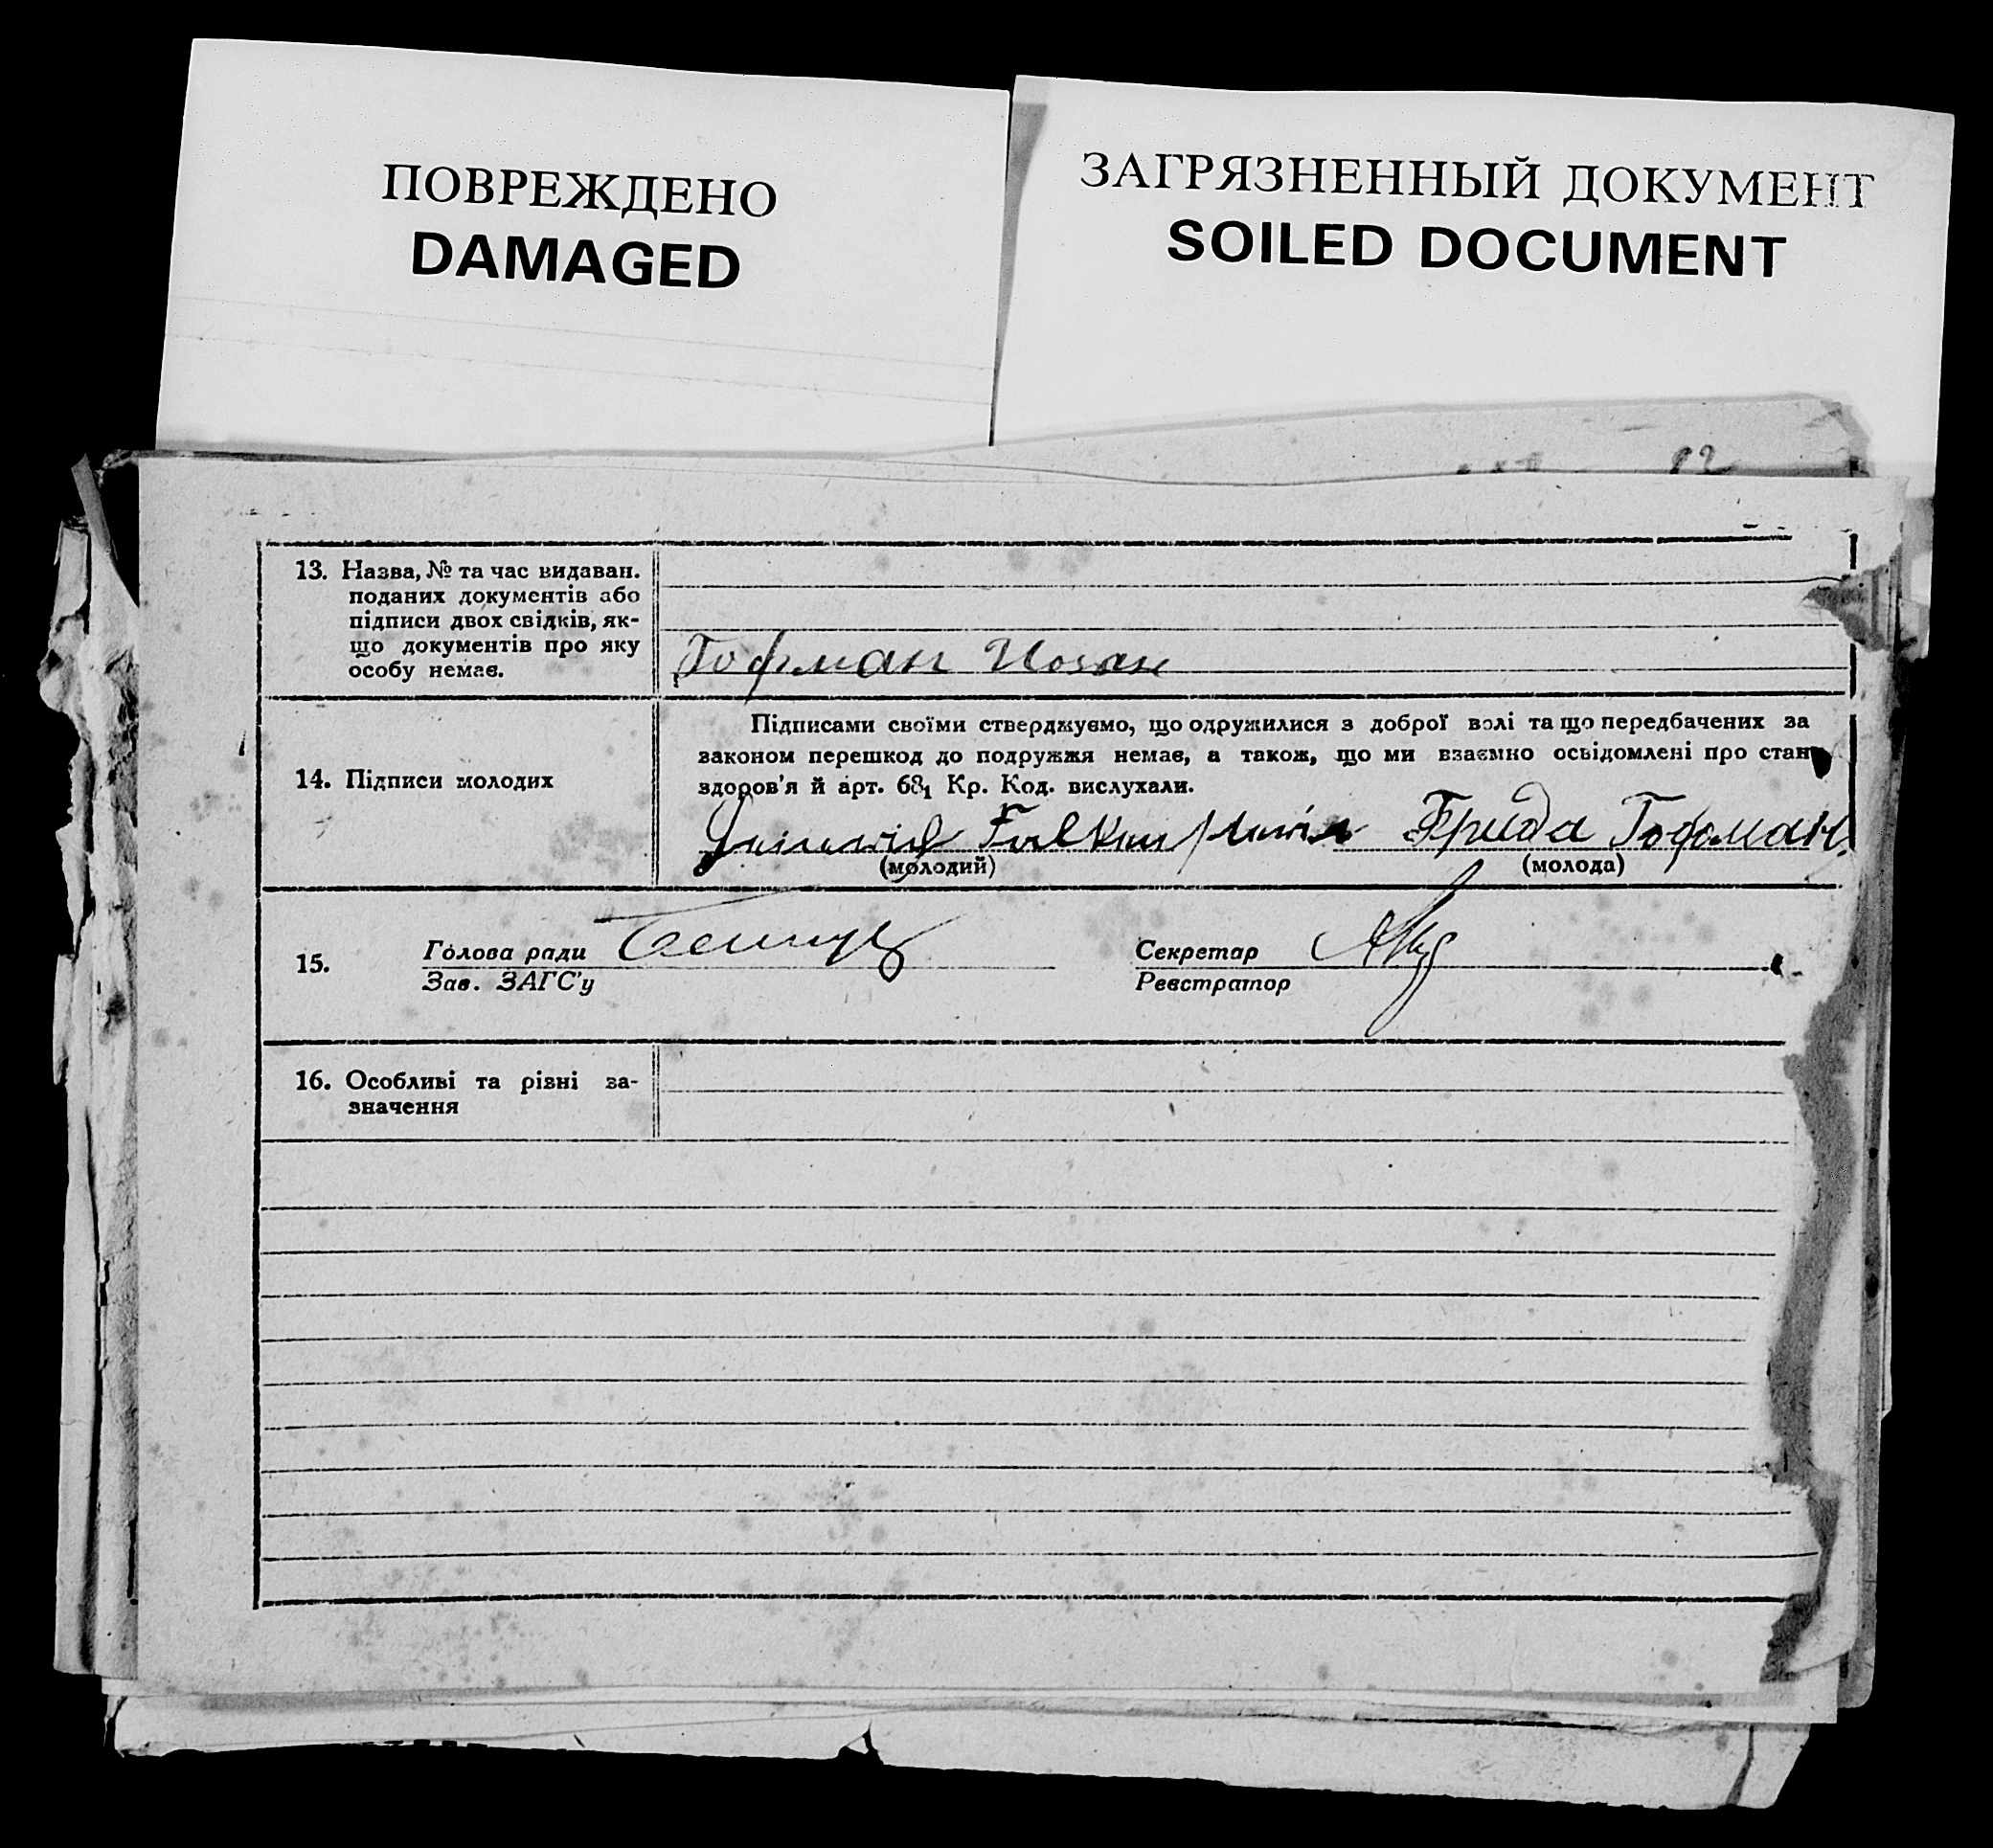 ПОВРЕЖДЕНО
DAMAGED
ЗАГРЯЗНЕННЫЙ ДОКУМЕНТ
SOILED DOCUMENT
82
13. Назва, № та час видаван.
поданих документів або
підписи двох свідків, як-
що документів про яку
особу немає.
Гофман Иоган
14. Підписи молодих
Підписами своїми стверджуємо, що одружилися з доброї волі та що передбачених за
законом перешкод до подружжя немає, а також, що ми взаємно освідомлені про стан
здоров'я й арт. 68₁ Кр. Код. вислухали.
Heinrich Falkenstein Фрида Гофман
(молодий) (молода)
15.
Голова ради
Зав. ЗАГС'у
Секретар
Реєстратор
16. Особливі та різні за-
значення